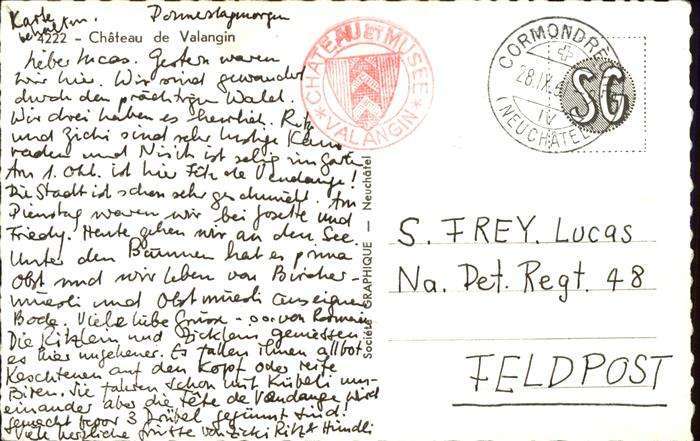 Karte Donnerstagmorgen
bezahlen.
4222 – Château de Valangin
Lieber Lucas. Gestern waren
wir hier. Wir sind gewandert
durch den prächtigen Wald.
Wir drei haben es herrlich. Ritz
und Zicki sind sehr lustige Kame
raden und ist selig im Garten.
Am 1. Okt. ist hier Fête de Vendange!
Die Stadt ist schon sehr geschmückt. Am
Dienstag waren wir bei Josette und
Friedy. Heute gehen wir an den See.
Unter den Bäumen hat es prima
Obst und wir leben von Bircher-
müesli und Obstmüesli aus eignem
Bode. Viele liebe Grüsse von
Die Ritzlein und Zicklein geniessen
es hier ungeheuer. Es fallen ihnen allbot
Keschtenen auf den Kopf oder reife
Biren. Sie fahren schon mit Kübeli um-
einander aber die Fête de Vendange wird
gemacht bevor 3 Trübel gesünnt sind!
Viele herzliche Grüsse von Zicki Ritz + Hündli
CHATEAU ET MUSÉE
VALANGIN
Société GRAPHIQUE — Neuchâtel
CORMONDRÈCHE
28.IX.
IV
(NEUCHÂTEL)
SG
S. FREY. Lucas
Na. Det. Regt. 48
FELDPOST